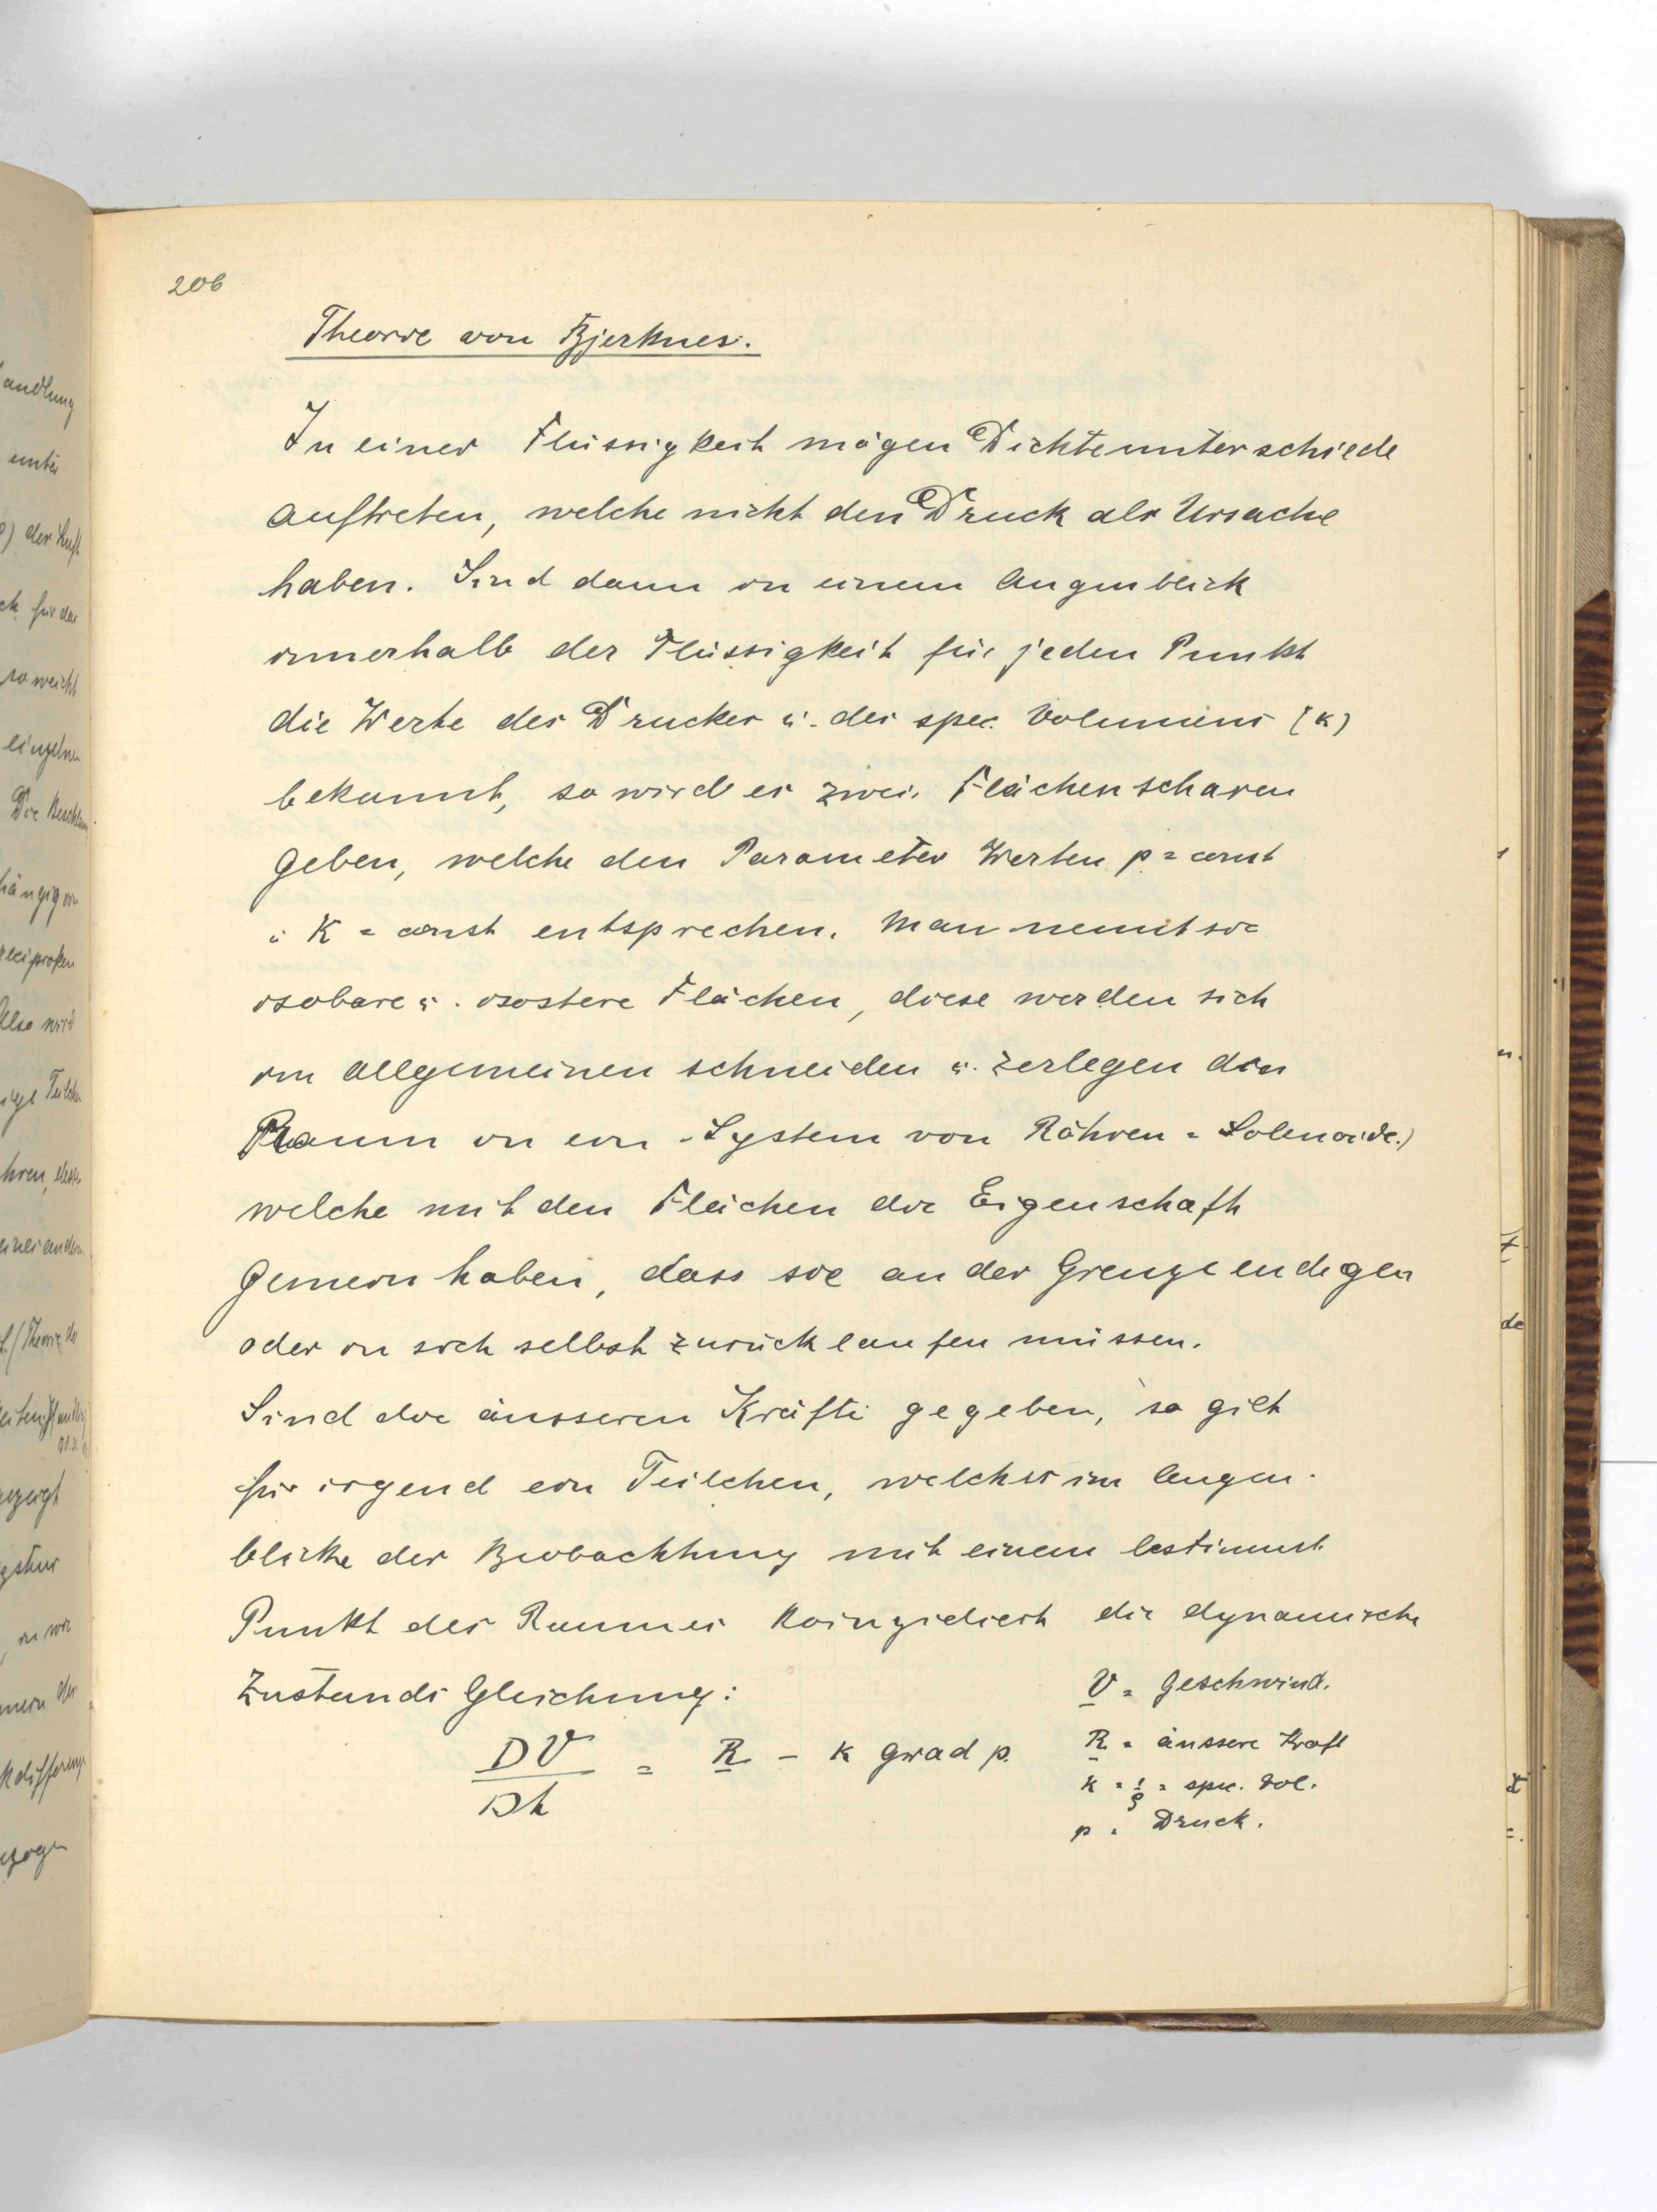 206
Theorie von Bjerknes.
In einer Flüssigkeit mögen Dichteunterschiede
auftreten, welche nicht den Druck als Ursache
haben. Sind dann in einem Augenblick
innerhalb der Flüssigkeit für jeden Punkt
die Werte des Druckes u. des spec. Volumens (k)
bekannt, so wird es zwei Flächenscharen
geben, welche den Parameter Werten p = const
u K = const entsprechen. Man nennt sie
isobare u. isostere Flächen, diese werden sich
im allgemeinen schneiden u. zerlegen den
Raum in ein System von Röhren = Solenoide.)
welche mit den Flächen die Eigenschaft
gemein haben, dass sie an der Grenze endigen
oder in sich selbst zurücklaufen müssen.
Sind die äusseren Kräfte gegeben, so gilt
für irgend ein Teilchen, welches im Augen-
blicke der Beobachtung mit einem bestimmt.
Punkt des Raumes koinzidiert die dynamische
Zustands Gleichung:
V = Geschwind.
DV/Dt = R - k grad p.
R = äussere Kraft
k = 1/ρ = spec. Vol.
p = Druck.
andlung
unter
) der Luft
ck für das
so weicht
einzelnen
hängig von
reciproken
Also wird
Teilchen
hren,
einer andern
(Theorie de
gezeigt
in wie
kdifferenz
ezogen